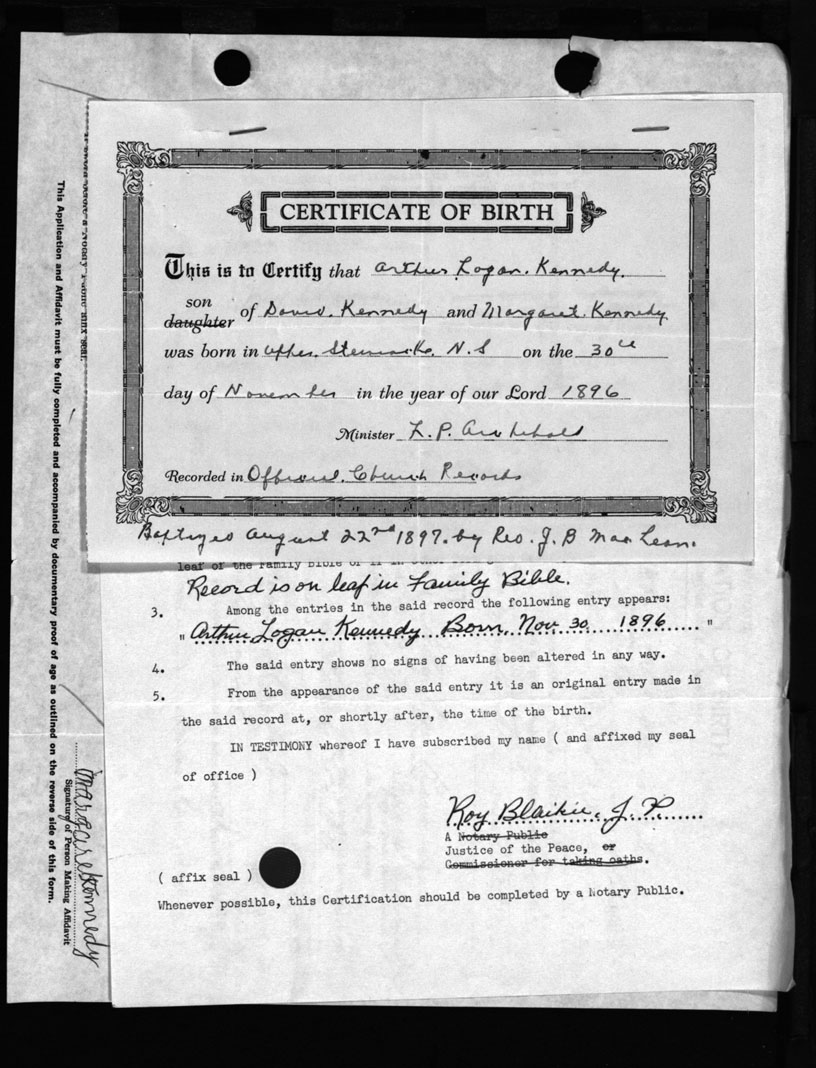 CERTIFICATE OF BIRTH
This is to Certify that Arthur Logan. Kennedy.
son
daughter of David. Kennedy and Margaret. Kennedy.
was born in Upper. Stewiacke. N.S on the 30th
day of November in the year of our Lord 1896
Minister L.P. Archibald
Recorded in Official. Church Records
Baptized August 22nd 1897. by Rev. J. B MacLean.
leaf of the Family Bible or if in other
Record is on leaf in Family Bible.
3. Among the entries in the said record the following entry appears:
" Arthur Logan Kennedy Born, Nov 30 1896 "
4. The said entry shows no signs of having been altered in any way.
5. From the appearance of the said entry it is an original entry made in
the said record at, or shortly after, the time of the birth.
IN TESTIMONY whereof I have subscribed my name ( and affixed my seal
of office )
Roy Blaikie, J.P.
A Notary Public
Justice of the Peace, or
Commissioner for taking oaths.
( affix seal )
Whenever possible, this Certification should be completed by a Notary Public.
before a Notary Public affix seal.
This Application and Affidavit must be fully completed and accompanied by documentary proof of age as outlined on the reverse side of this form.
Margaret Kennedy
Signature of Person Making Affidavit